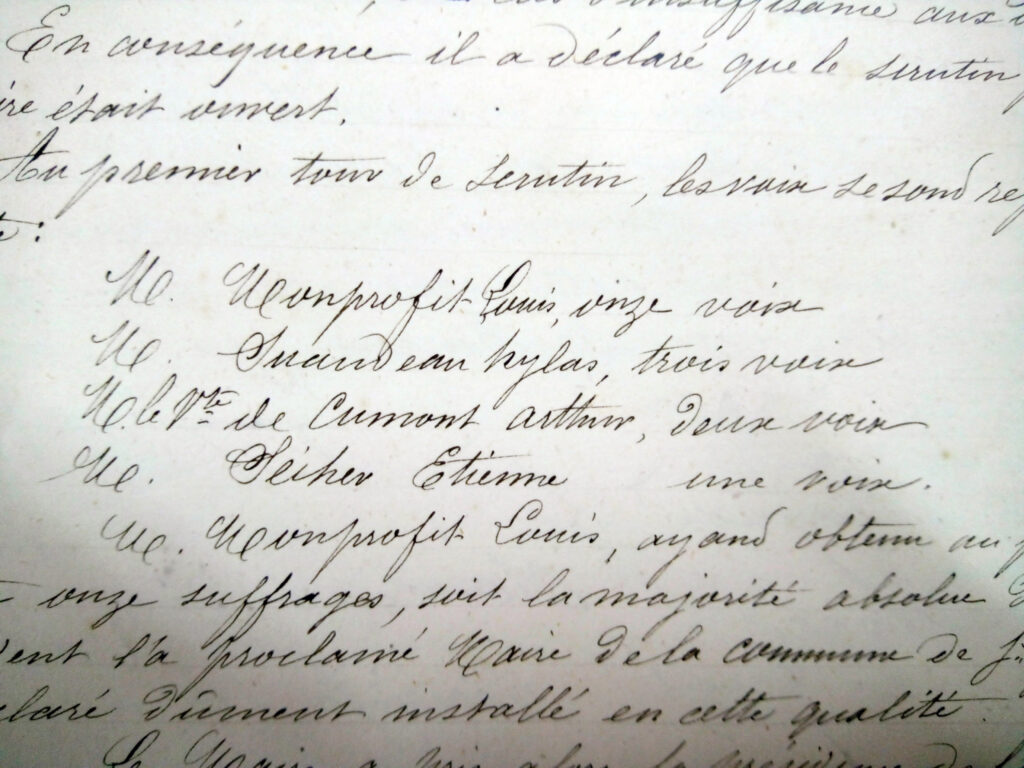 d'insuffisance aux
En conséquence il a déclaré que le scrutin
ire était ouvert.
Au premier tour de scrutin, les voix se sond rep
te:
M. Monprofit Louis, onze voix
M. hylas, trois voix
M le Vte de Cumont Arthur, deux voix
M. Sécher Etienne une voix.
M. Monprofit Louis, ayand obtenu au p
t onze suffrages, soit la majorité absolue d
ent l'a proclamé Maire de la commune de
claré dûment installé en cette qualité.
Le Maire a pris alors la présidence de l